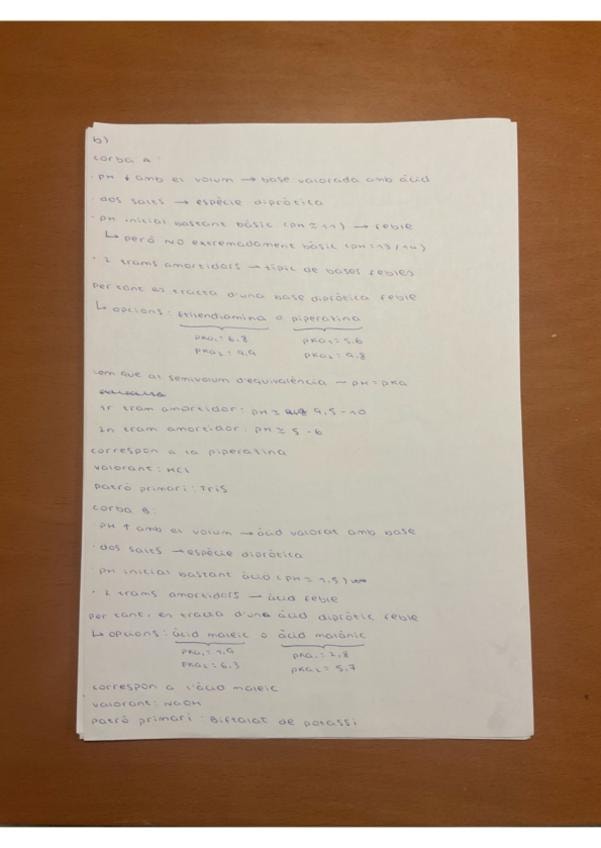 b)
corba A:
· pH ↓ amb el volum → base valorada amb àcid
· dos salts → espècie dipròtica
· pH inicial bastant bàsic (pH ≃ 11) → feble
↳ però NO extremadament bàsic (pH=13/14)
· 2 trams amortidors → típic de bases febles
per tant es tracta d'una base dipròtica feble
↳ opcions: Etilendiamina o piperazina
pKa₁= 6,8 pKa₁= 5,6
pKa₂= 9,9 pKa₂= 9,8
com que al semivolum d'equivalència → pH=pKa
1r tram amortidor: pH ≃ 9,5-10
2n tram amortidor: pH ≃ 5-6
correspon a la piperazina
valorant: HCl
patró primari: Tris
corba B:
· pH ↑ amb el volum → àcid valorat amb base
· dos salts → espècie dipròtica
· pH inicial bastant àcid (pH ≃ 1,5)
· 2 trams amortidors → àcid feble
per tant, es tracta d'una àcid dipròtic feble
↳ opcions: àcid maleic o àcid malònic
pKa₁= 1,9 pKa₁= 2,8
pKa₂= 6,3 pKa₂= 5,7
correspon a l'àcid maleic
valorant: NaOH
patró primari: Biftalat de potassi